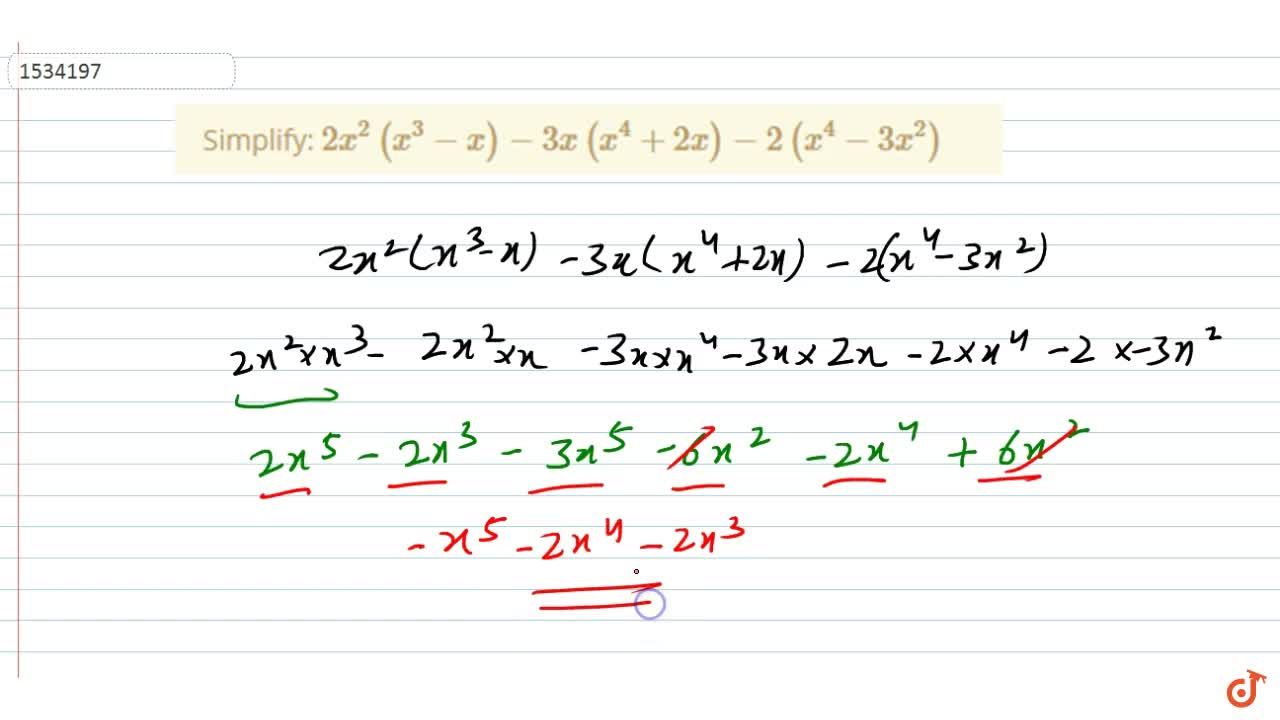 1534197
Simplify: 2x² (x³ − x) − 3x (x⁴ + 2x) − 2 (x⁴ − 3x²)
2x²(x³-x) -3x(x⁴+2x) -2(x⁴-3x²)
2x²×x³- 2x²×x -3x×x⁴-3x×2x -2×x⁴ -2×-3x²
2x⁵ - 2x³ - 3x⁵ -6x² -2x⁴ + 6x²
-x⁵ -2x⁴ -2x³